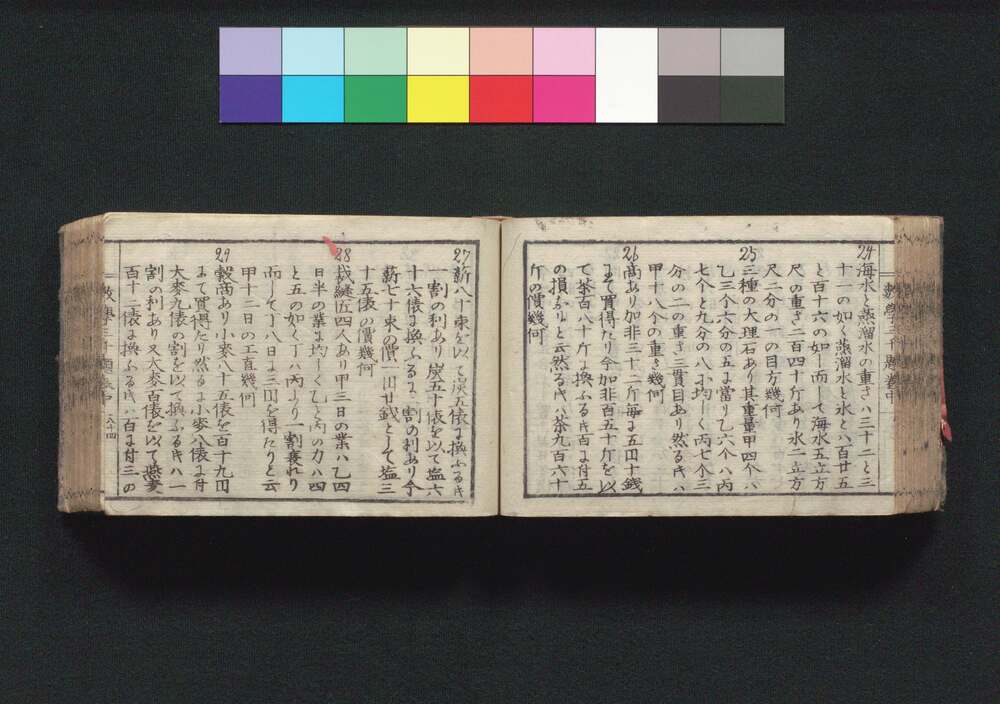 24
海水と蒸溜水の重さハ三十二と三
十一の如く蒸溜水と氷とハ百廿五
と百十六の如し而して海水五立方
尺の重さ二百四十斤あり氷二立方
尺二分の一の目方幾何
25
三種の大理石あり其重量甲四个ハ
乙三个六分の五に當り乙六个ハ丙
七个と九分の八に均しく丙七个三
分の二の重さ三貫目あり然る片ハ
甲十八个の重さ幾何
26
商あり加非三十二斤毎に五円十銭
にて買得たり今加非百五十斤を以
て茶百八十斤に換ふる片百に付五
の損ありと云然る片ハ茶九百六十
斤の價幾何
數學三千題卷中
27
薪八十束を以て炭五俵に換ふる片
一割の利あり炭五十俵を以て塩六
十六俵に換ふるに二割の利あり今
薪七十束の價一円廿銭として塩三
十五俵の價幾何
28
裁縫匠四人あり甲三日の業ハ乙四
日半の業に均しく乙と丙の力ハ四
と五の如く丁ハ丙より一割衰れり
而して丁八日に三円を得たりと云
甲十三日の工直幾何
29
穀商あり小麥八十五俵を百十九円
にて買得たり然るに小麥八俵に付
大麥九俵の割を以て換ふる片ハ一
割の利あり又大麥百俵を以て燕麥
百十二俵に換ふる片ハ百に付三の
數學三千題卷中